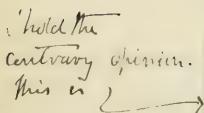 hold the
contrary opinion.
This is